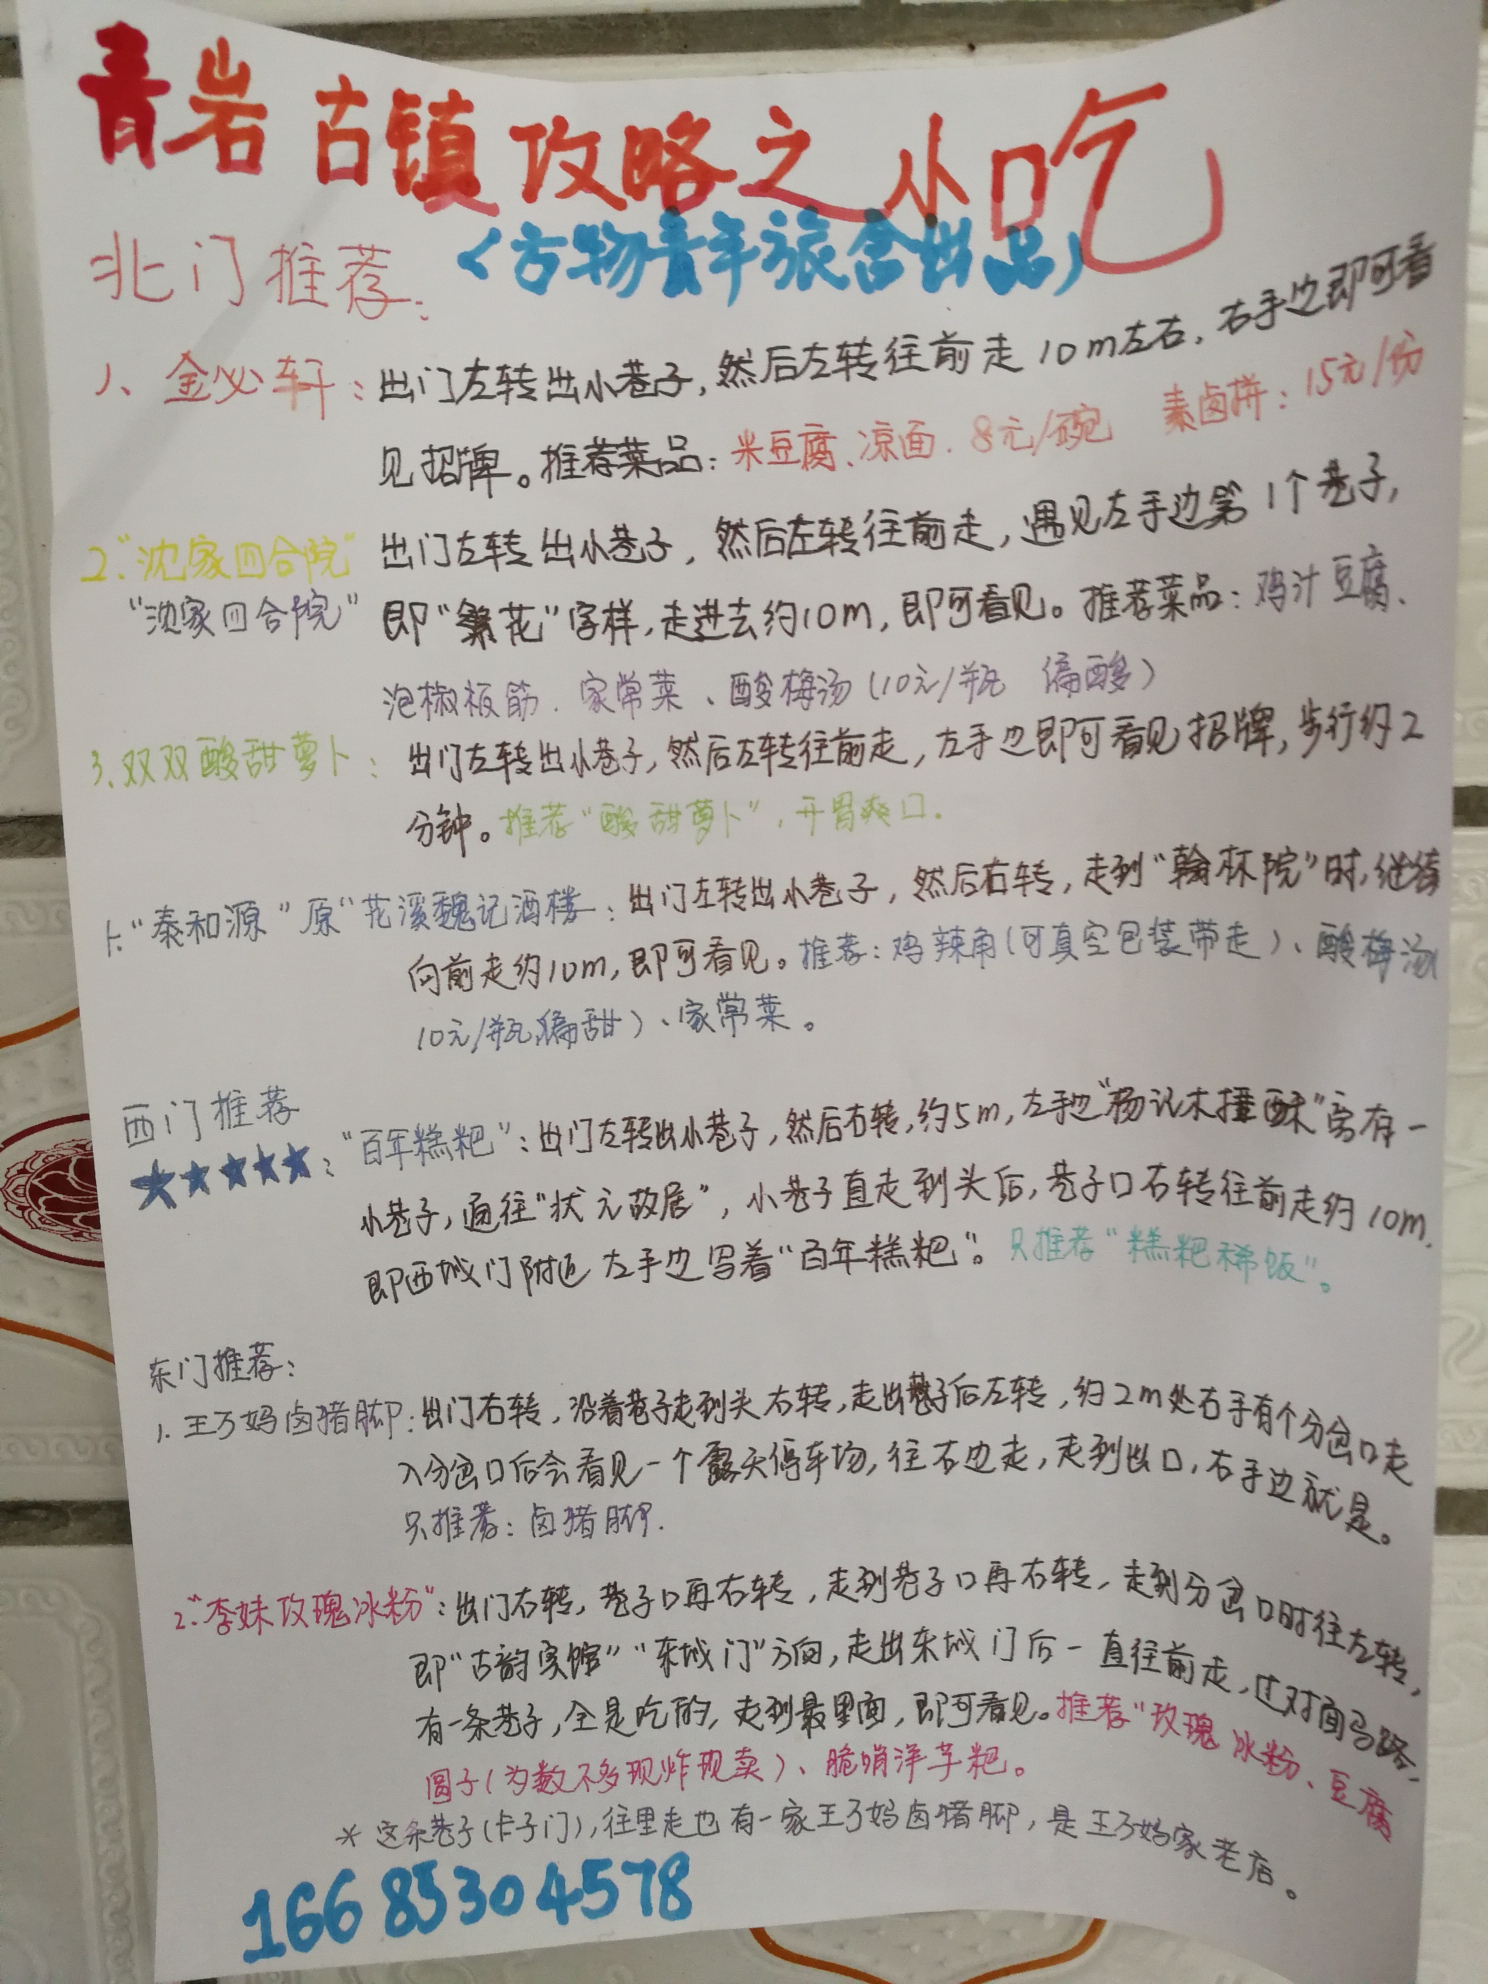 青岩古镇攻略之小吃
北门推荐: <古物青年旅舍出品>
1、金必轩: 出门左转出小巷子,然后左转往前走10m左右,右手边即可看
见招牌。推荐菜品:米豆腐、凉面.8元/碗 素卤拼:15元/份
2."沈家四合院" 出门左转出小巷子,然后左转往前走,遇见左手边第1个巷子,
"沈家四合院" 即"繁花"字样,走进去约10m,即可看见。推荐菜品:鸡汁豆腐、
泡椒板筋.家常菜、酸梅汤(10元/瓶 偏酸)
3、双双酸甜萝卜: 出门左转出小巷子,然后左转往前走,左手边即可看见招牌,步行约2
分钟。推荐"酸甜萝卜",开胃爽口.
1."泰和源"原"花溪魏记酒楼:出门左转出小巷子,然后右转,走到"翰林院"时,继续
向前走约10m,即可看见。推荐:鸡辣角(可真空包装带走)、酸梅汤(
10元/瓶,偏甜)、家常菜。
西门推荐
★★★★★: "百年糕粑":出门左转出小巷子,然后右转,约5m,左手边"杨记木捶酥"旁有一
小巷子,通往"状元故居",小巷子直走到头后,巷子口右转往前走约10m.
即西城门附近 左手边写着"百年糕粑"。只推荐"糕粑稀饭"。
东门推荐:
1.王了妈卤猪脚:出门右转,沿着巷子走到头右转,走出巷子后左转,约2m处右手有个分岔口走
入分岔口后会看见一个露天停车场,往右边走,走到出口,右手边就是。
只推荐:卤猪脚.
2."李妹玫瑰冰粉":出门右转,巷子口再右转,走到巷子口再右转,走到分岔口时往左转,
即"古韵宾馆""东城门"方向,走出东城门后一直往前走,过对面马路,
有一条巷子,全是吃的,走到最里面,即可看见。推荐"玫瑰冰粉、豆腐
圆子(为数不多现炸现卖)、脆哨洋芋粑。
*这条巷子(卡子门),往里走也有一家王了妈卤猪脚,是王了妈家老店。
16685304578